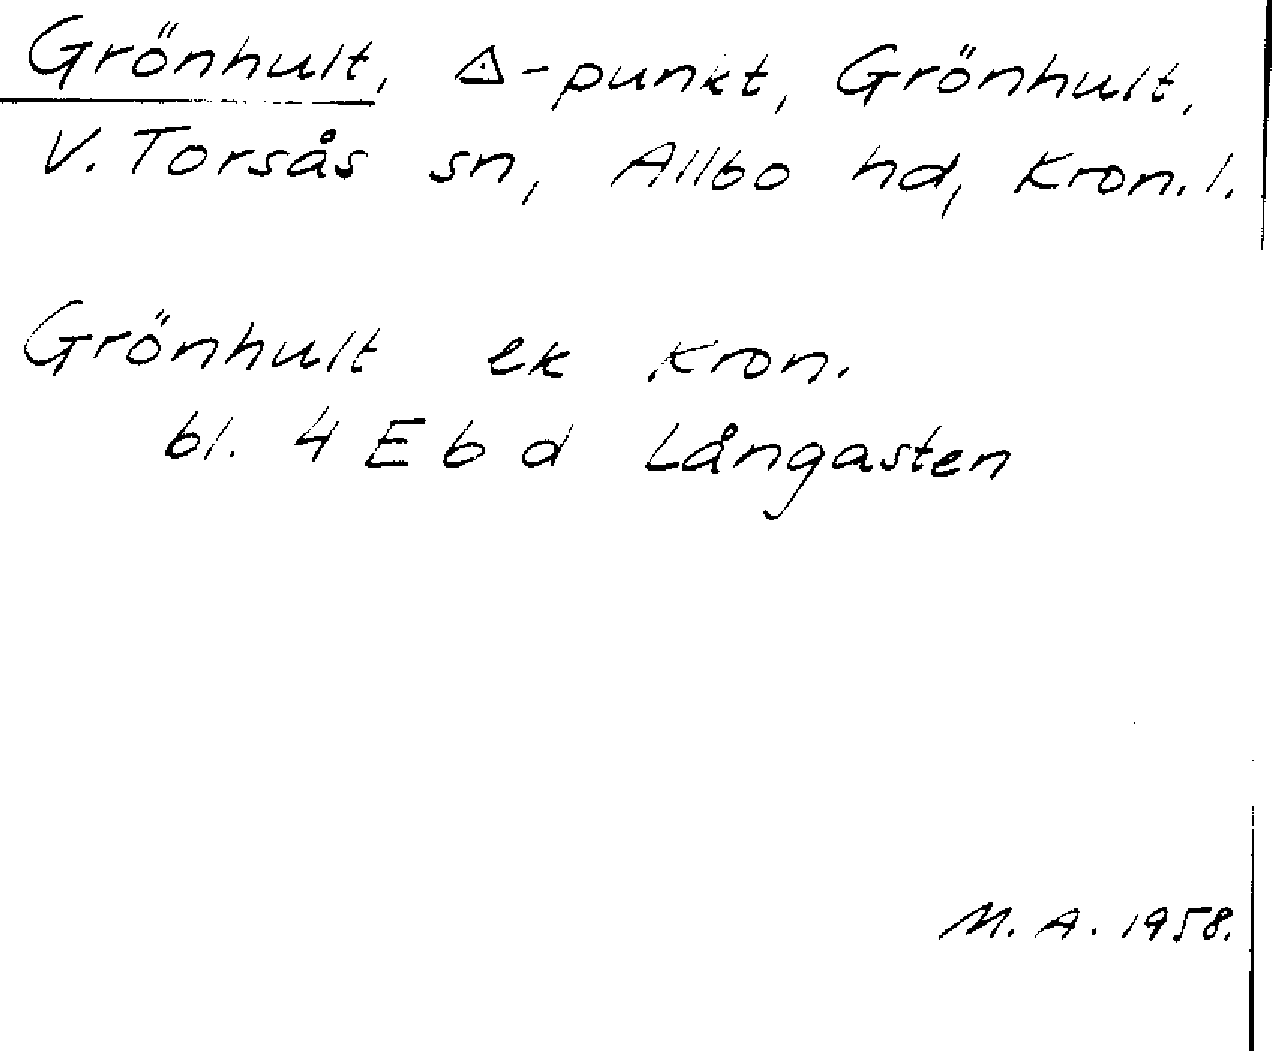 Grönhult, △-punkt, Grönhult,
V. Torsås sn, Allbo hd, Kron. l.
Grönhult ek Kron.
bl. 4 E b d Långasten
M. A. 1958.